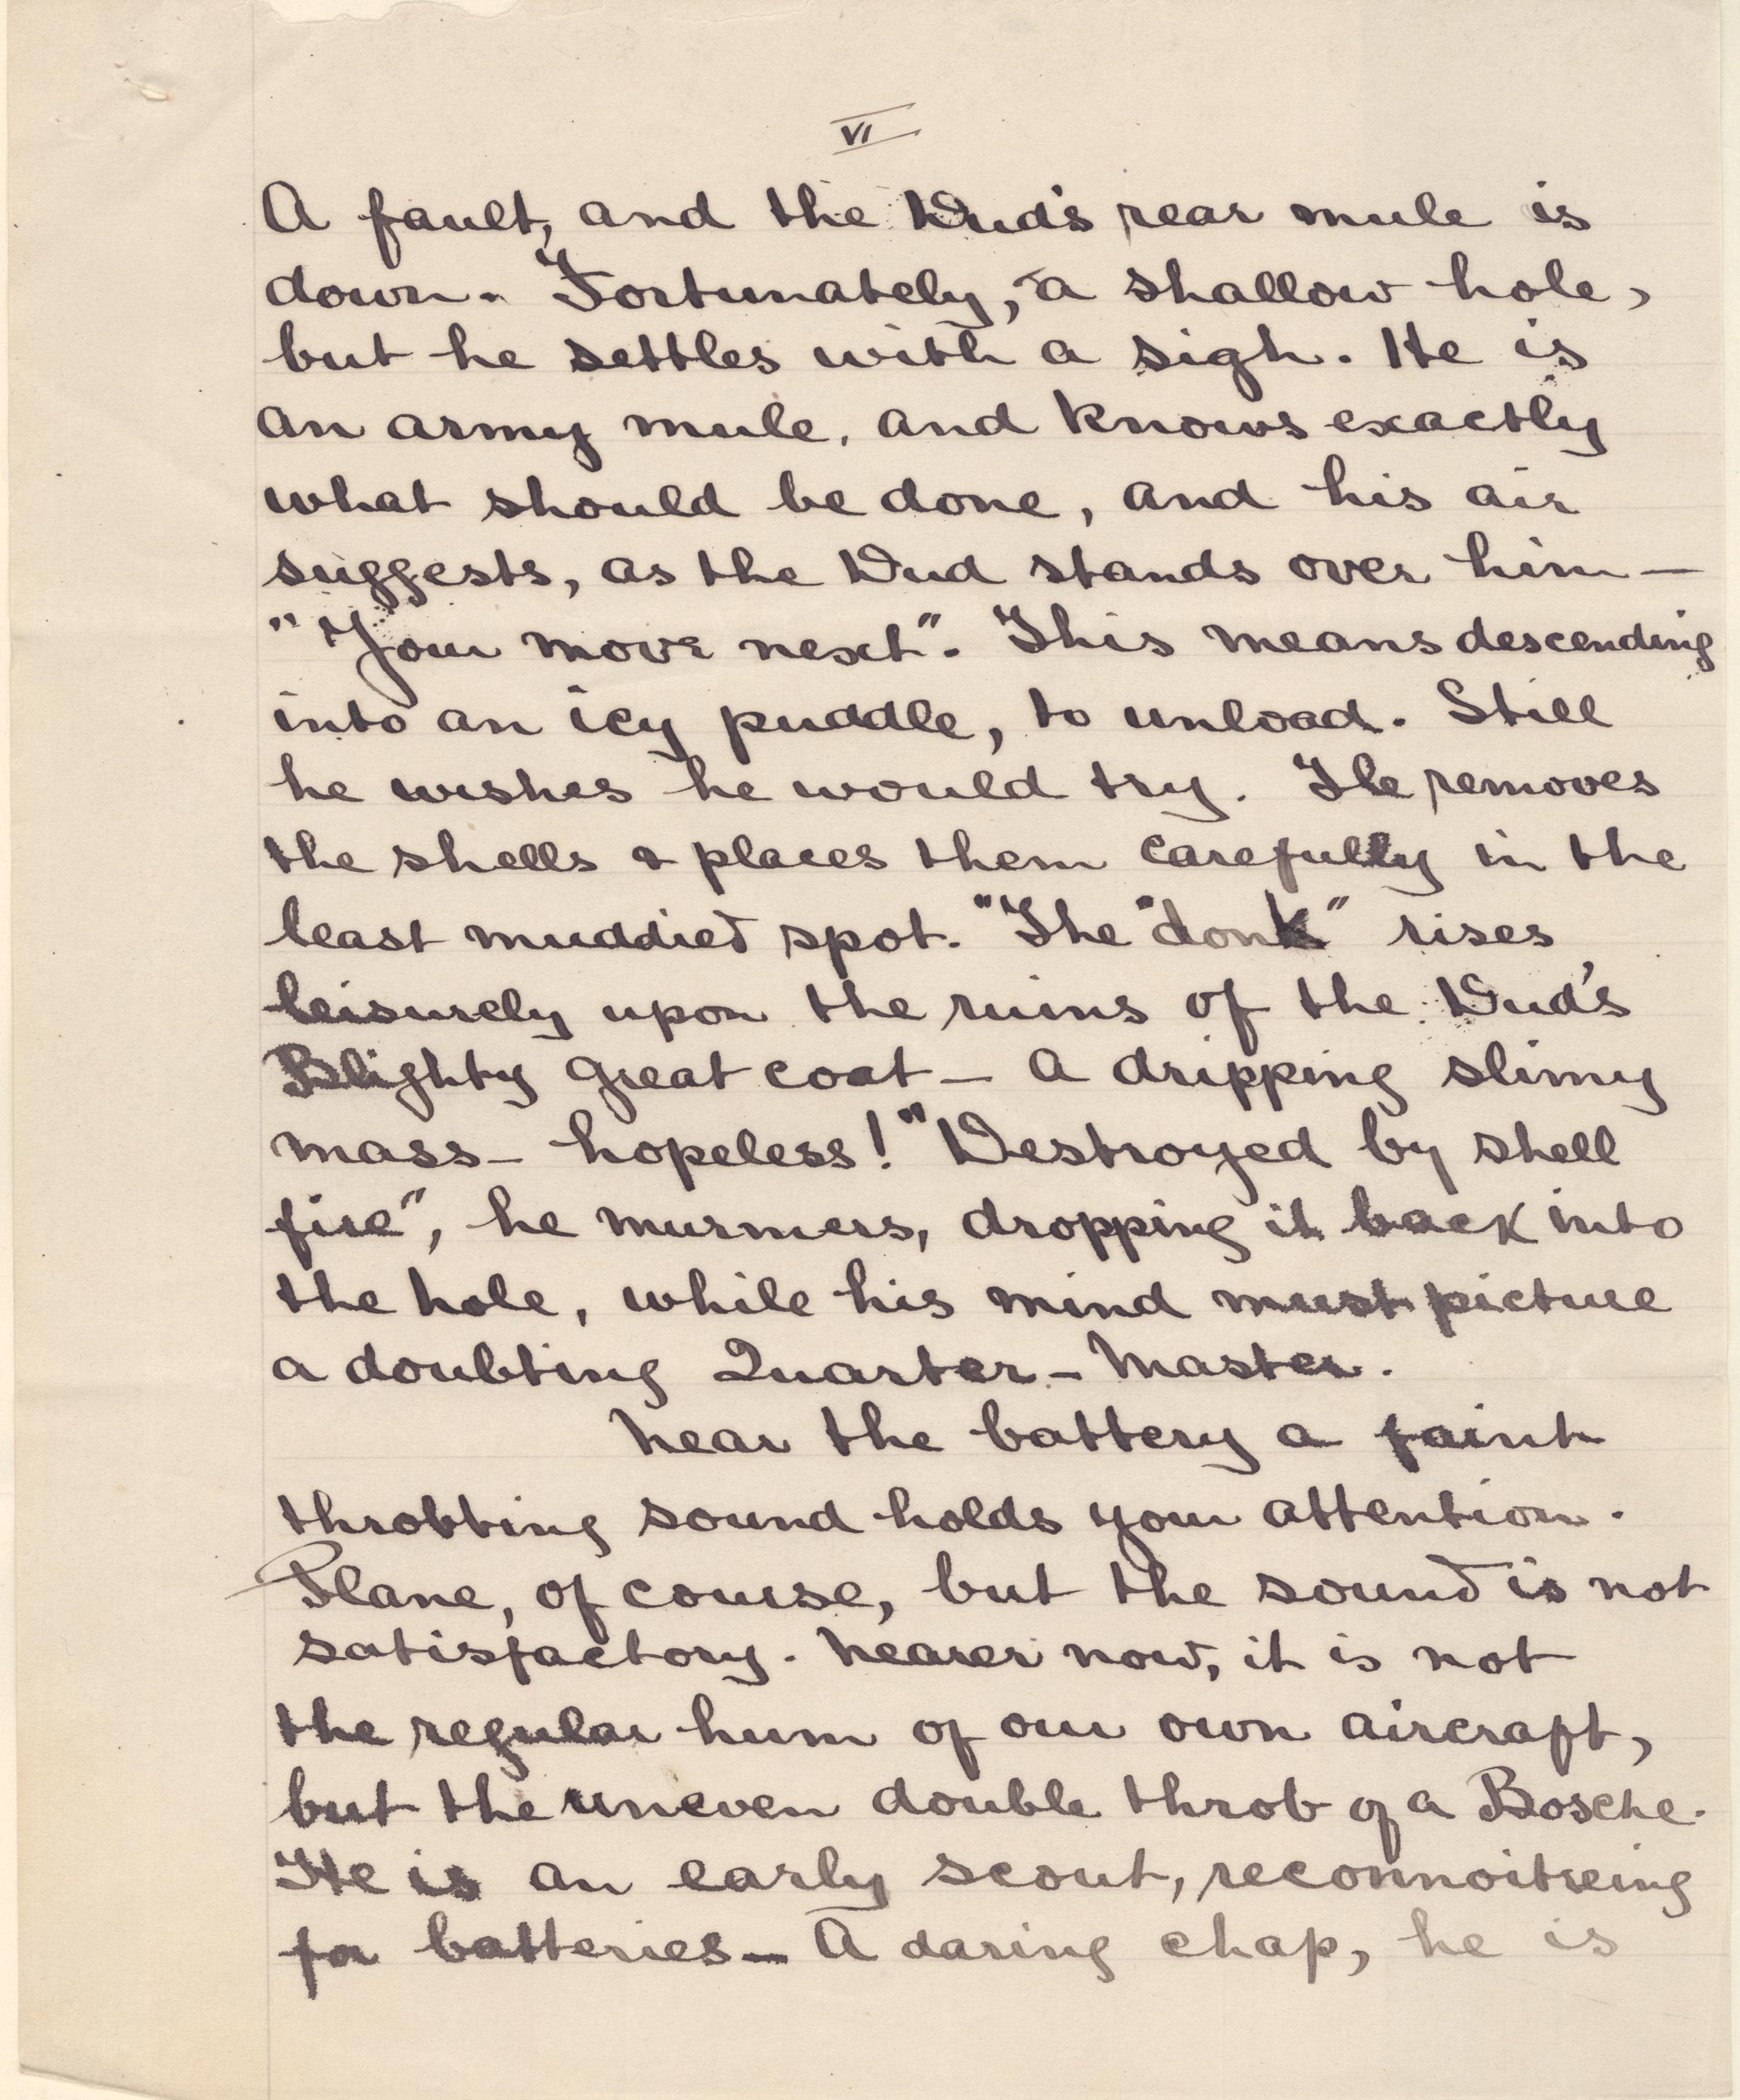 VI
A fault, and the Dud's rear mule is
down. Fortunately, a shallow hole,
but he settles with a sigh. He is
an army mule, and knows exactly
what should be done, and his air
suggests, as the Dud stands over him—
"Your move next". This means descending
into an icy puddle, to unload. Still
he wishes he would try. He removes
the shells & places them carefully in the
least muddied spot. "The "donk" rises
leisurely upon the ruins of the Dud's
Blighty great coat — a dripping slimy
mass — hopeless! "Destroyed by shell
fire", he murmers, dropping it back into
the hole, while his mind must picture
a doubting Quarter-Master.
Near the battery a faint
throbbing sound holds your attention.
Plane, of course, but the sound is not
satisfactory. Nearer now, it is not
the regular hum of our own aircraft,
but the uneven double throb of a Bosche.
He is an early scout, reconnoitreing
for batteries — A daring chap, he is